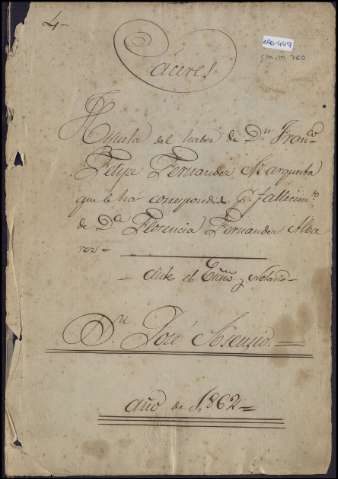 4
Cáceres.
Hijuela del haber de Dn. Franco
Felipe Fernandez Margunta
que le ha correspond.do por fallecim.to
de Da. Florencia Fernandez Alba
rez
ante el Esño y Notario
Dn. José Asensio.
año de 1,862=